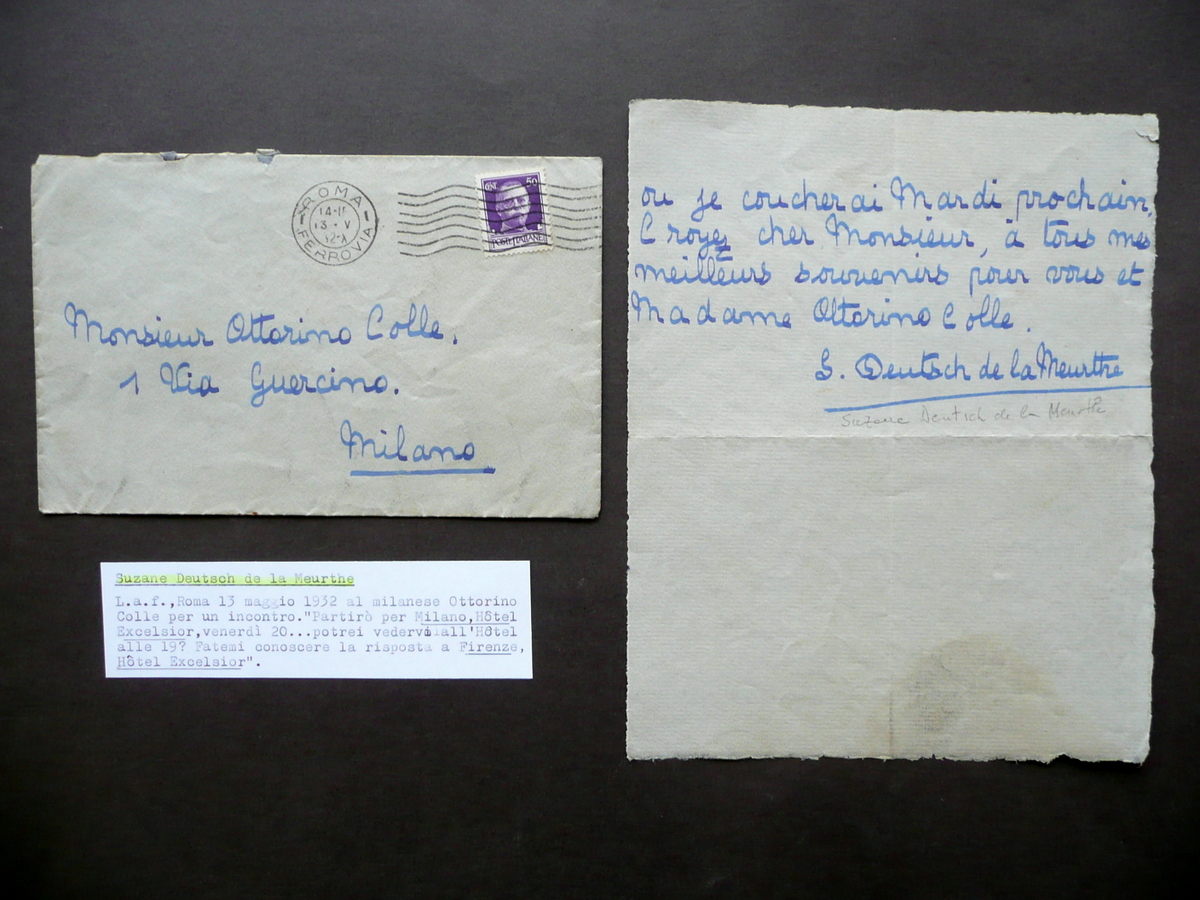 ROMA
14-15
13·V
32·X
FERROVIA
50
POSTE ITALIANE
Monsieur Ottorino Colle.
1 Via Guercino.
Milano
Suzane Deutsch de la Meurthe
L.a.f.,Roma 13 maggio 1932 al milanese Ottorino
Colle per un incontro."Partirò per Milano,Hôtel
Excelsior,venerdì 20...potrei vedervi all'Hôtel
alle 19? Fatemi conoscere la risposta a Firenze,
Hôtel Excelsior".
ou je coucherai Mardi prochain.
Croyez cher Monsieur, à tous mes
meilleurs souvenirs pour vous et
Madame Ottorino Colle.
S. Deutsch de la Meurthe
Suzane Deutsch de la Meurthe